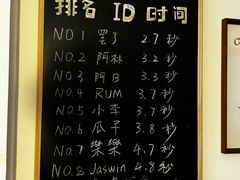 排名 ID 时间
NO 1 罢了 2.7 秒
NO.2 阿林 3.2 秒
NO.3 阿日 3.3 秒
NO.4 RUM 3.7 秒
NO.5 小李 3.7 秒
No.6 瓜子 3.8 秒
No.7 樂樂 4.7 秒
NO.8 Jaswin 4.8 秒